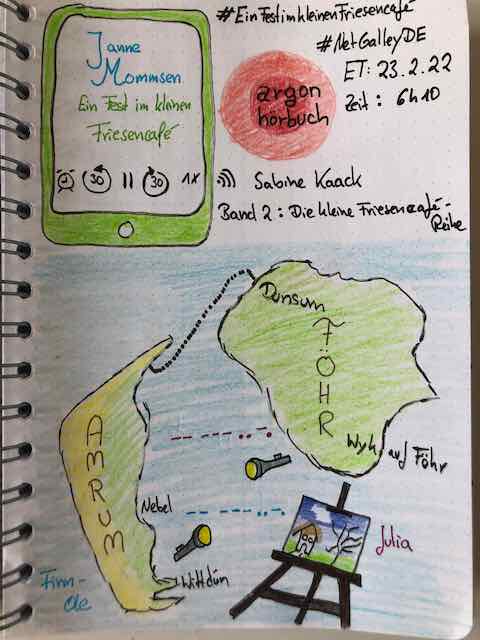 #EinFestimkleinenFriesencafé
#NetGalleyDE
ET: 23.2.22
Zeit: 6h10
Janne
Mommsen
Ein Fest im kleinen
Friesencafé
30 || 30 1x
argon
hörbuch
Sabine Kaack
Band 2: Die kleine Friesencafé-
Reihe
Dunsum
FÖHR
Wyk auf Föhr
AMRUM
Nebel
Wittdün
Julia
Finn-
Ole